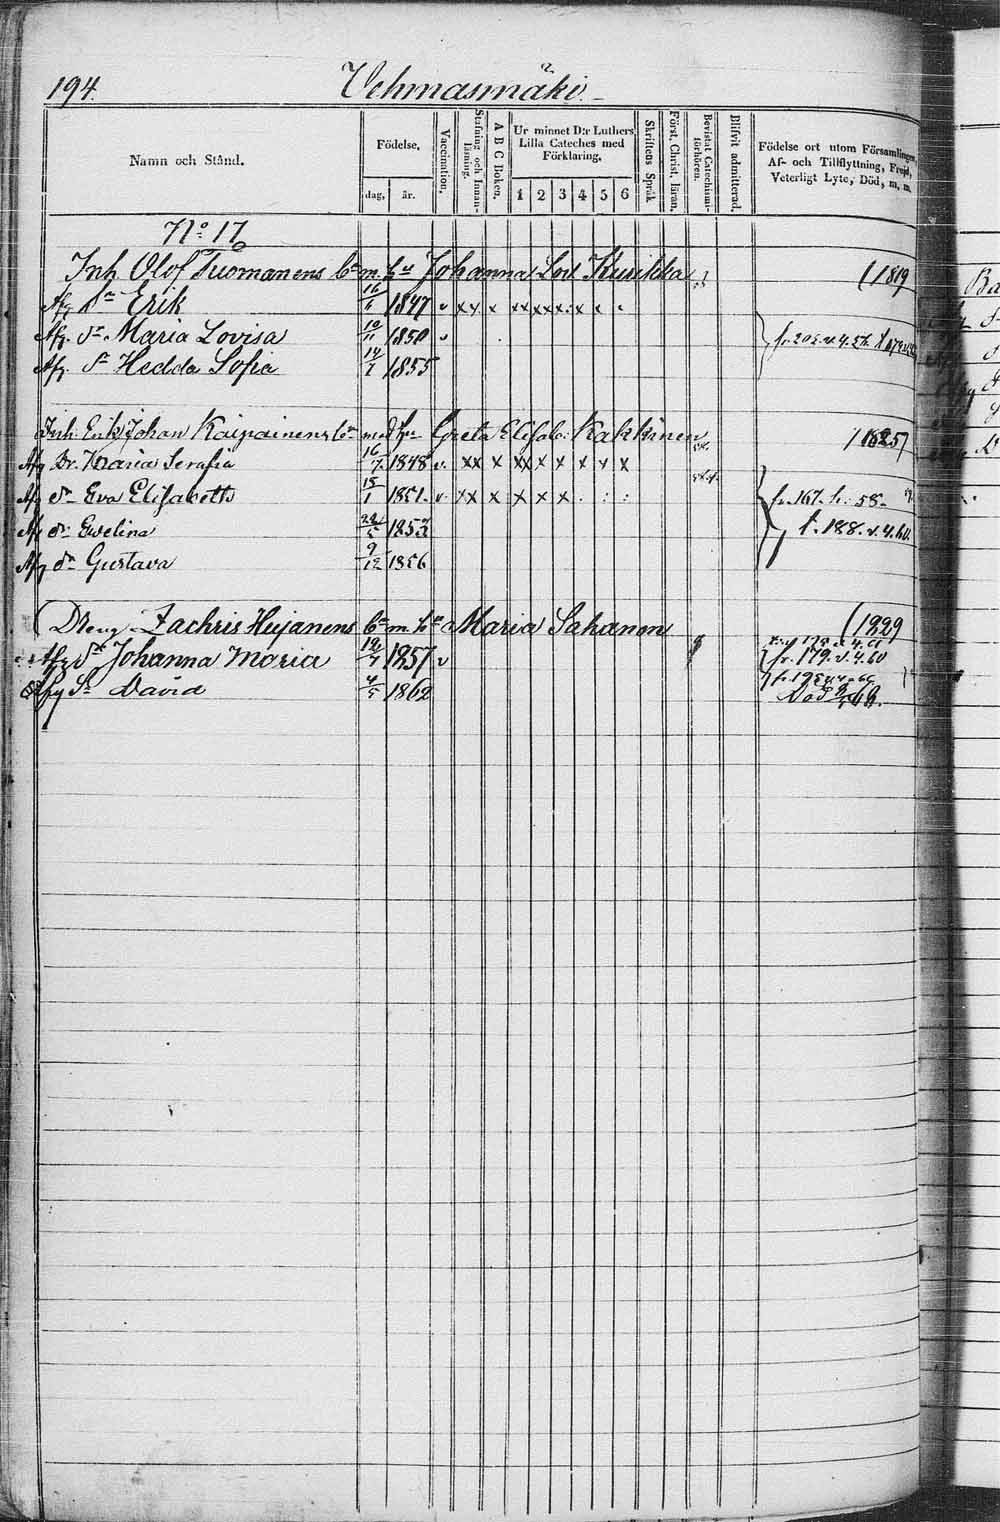 194. Vehmasmäki.
Namn och Stånd.
Födelse,
dag, år.
Vaccination,
Stafning och Innanläsning.
A B C Boken.
Ur minnet D:r Luthers Lilla Cateches med Förklaring,
1 2 3 4 5 6
Skriftens Språk
Först. Christ. läran,
Bevistat Catechismiförhören.
Blifvit admitterad.
Födelse ort utom Församlingen, Af- och Tillflyttning, Frejd, Veterligt Lyte, Död, m. m.
No 17
Inh. Olof Tuomanens bn m. hu Johanna Lov. Kurikka (1819
Afg. Sn Erik 16/6 1847 v x x x x x x x
Afg. Dr Maria Lovisa 1850 v
Afg. Dr Hedda Sofia 14/7 1855
Inh. Erik Johan Kaipainens bn med hu Greta Elisab: Kakkinen 1825
Afg Dr. Maria Serafia 16/7 1848 v. xx x xx x x x x x
Afg dr Eva Elisabeth 15/1 1851. v xx x x x x fr. 167. h. 58.
Afg dr Evelina 5 1853 t. 188. v. 4. 60.
Afg dr Gustava 9/12 1856
Dreng. Zachris Hujanens bn m. hu Maria Sahanen (1829
Afg Dr Johanna Maria 1857 v fr. 179. v. 4. 60
Afg Sn David 4/5 1862